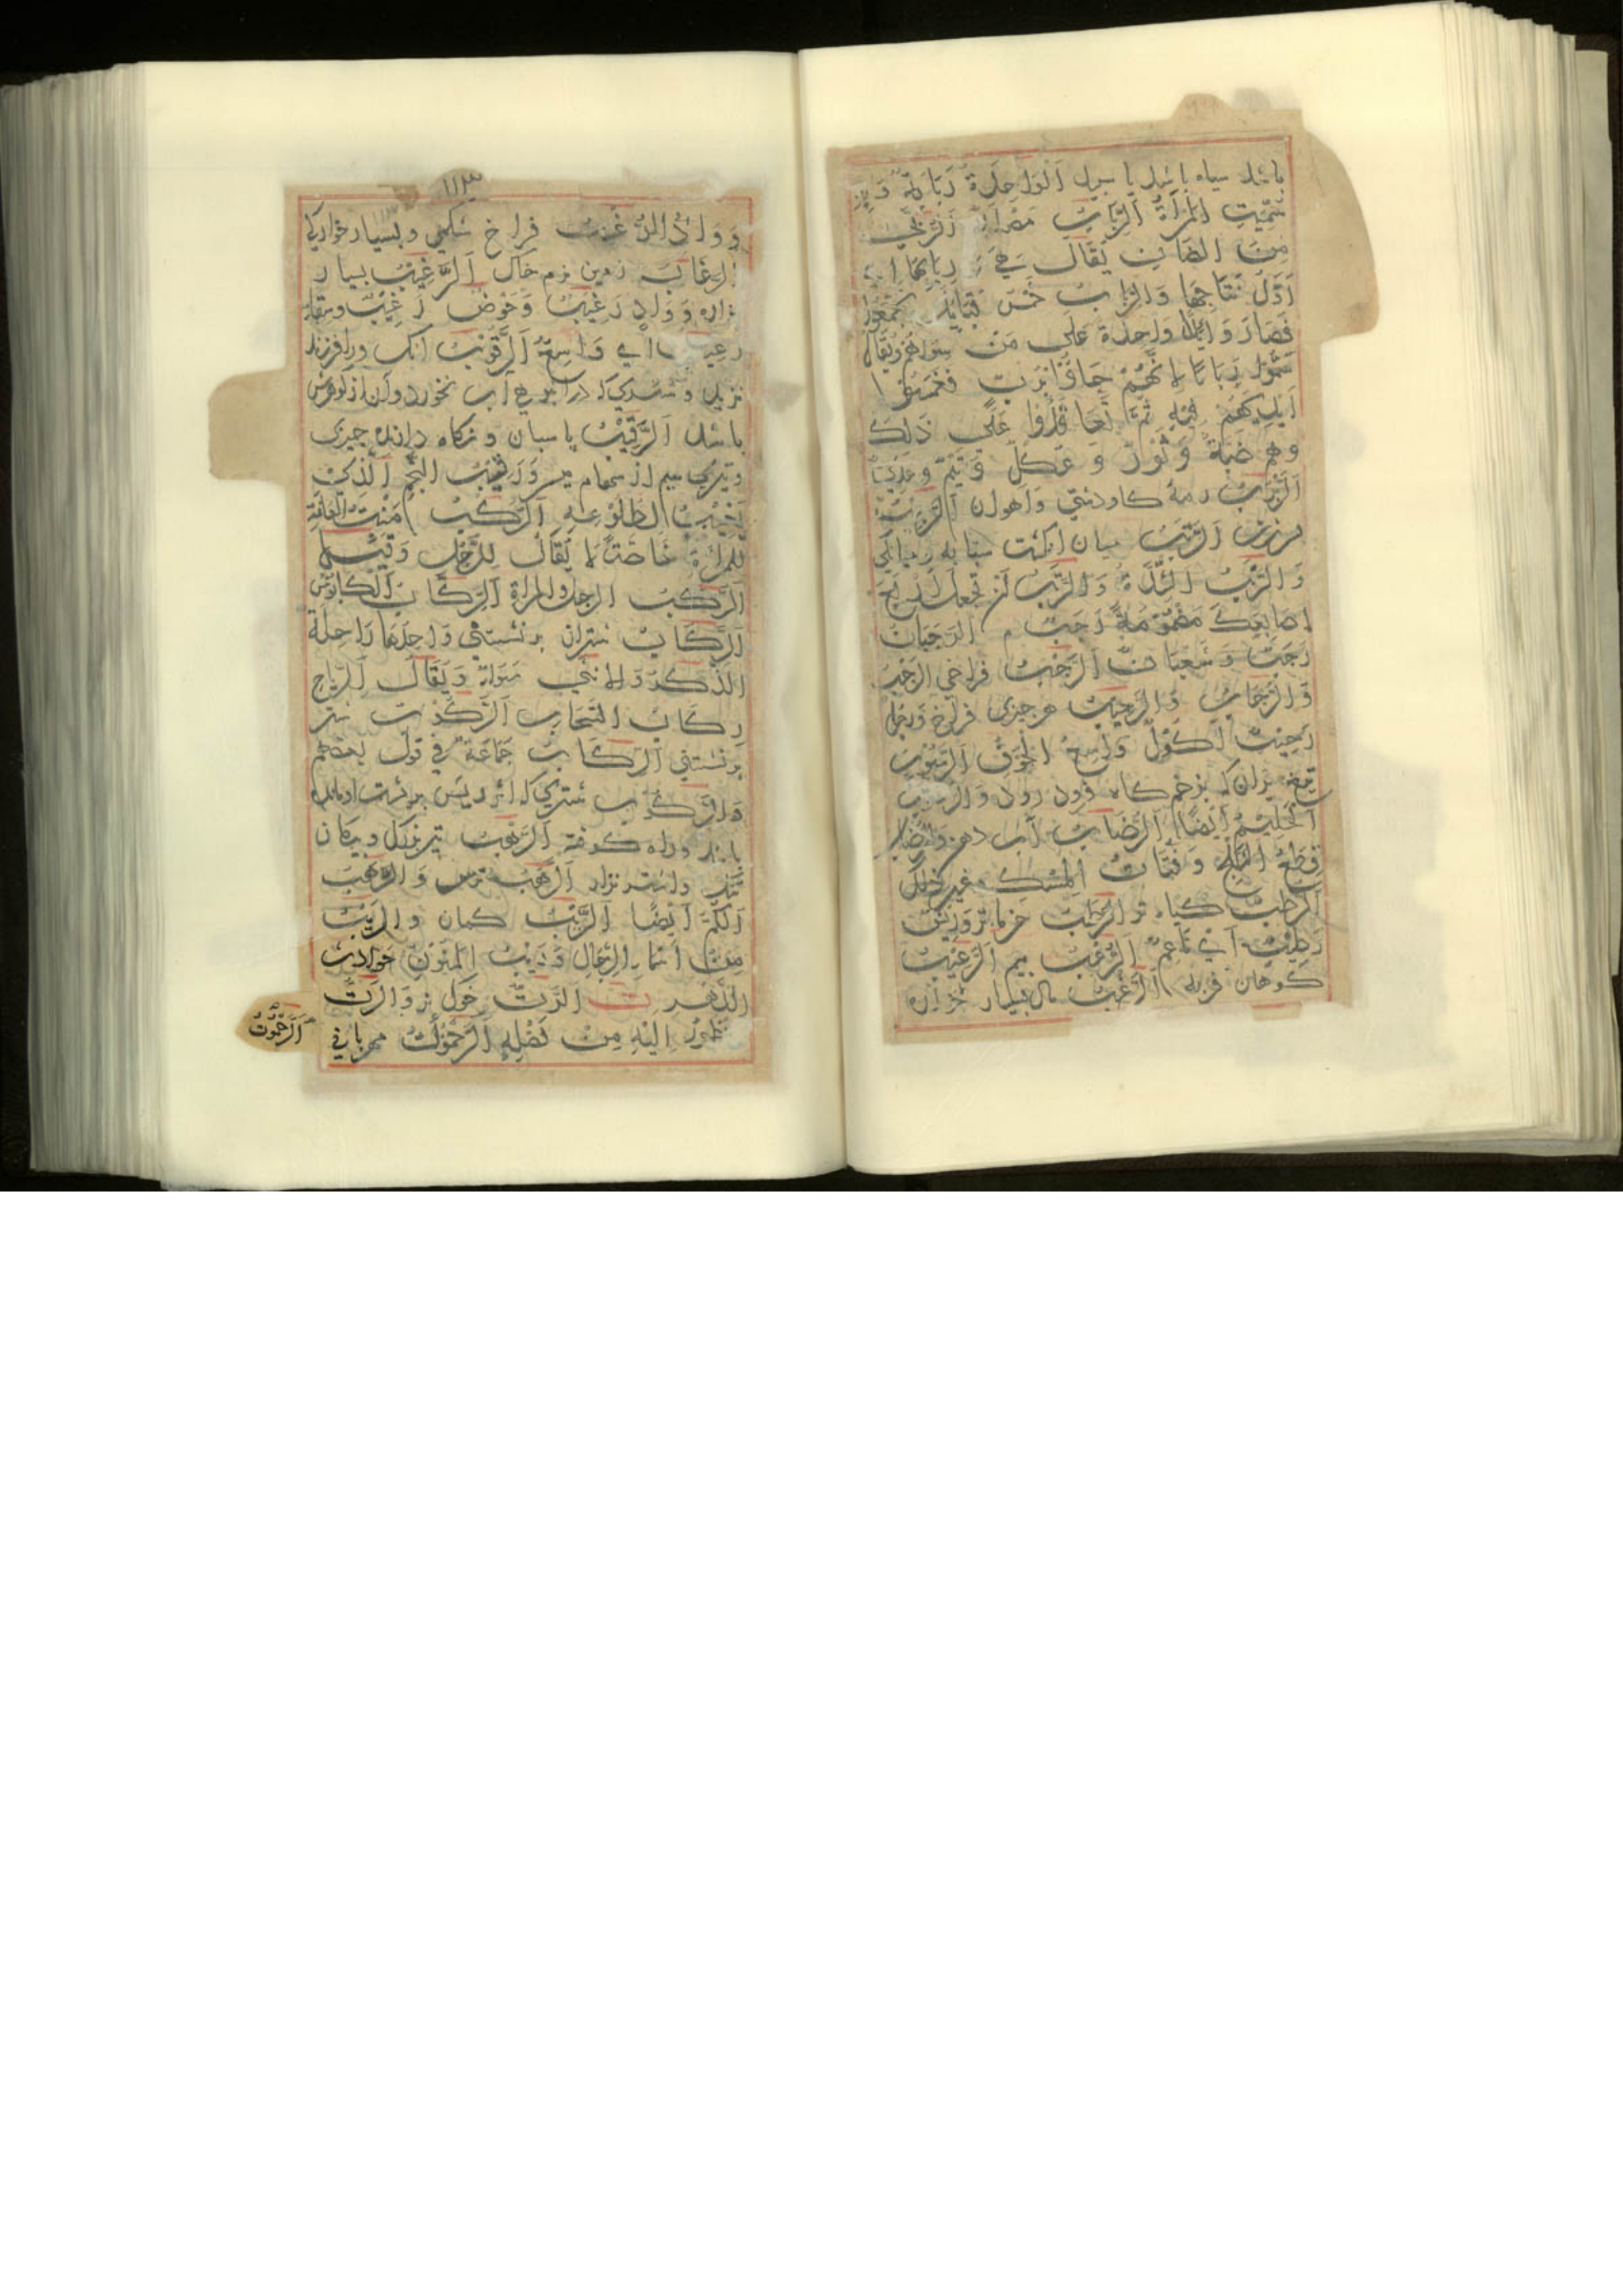 باشد سیاه باشد یا سپید اَلْوَاحِدَةُ رَبَابَةٌ وَبِهِ
سُمِّيَتِ المَرْأَةُ اَلرَّبَابَ اَلرُّبّٰى
مِنَ الضَّانِ يُقَالُ هِيَ فِي رِبَابِهَا
اَوَّلُ نَتَاجِهَا وَالرِّبَابُ خَمْسُ قَبَايِلَ تَجَمَّعُوا
فَصَارُوا يَدًا وَاحِدَةً عَلَى مَنْ سِوَاهُمْ وَيُقَالُ
سُمُّوا رِبَابًا لِاَنَّهُمْ جَاؤُا بِرُبٍّ فَغَمَسُوا
اَيْدِيَهُمْ فِيْهِ ثُمَّ تَعَاقَدُوا عَلَى ذَلِكَ
وهم ضَبَّةُ وَثَوْرٌ وَعُكْلٌ وَتَيْمٌ وعَدِيٌّ
اَلرَّبْرَبُ رمهٔ کاو دشتی وآهوان
اَلرَّتَبُ میان انکشت سبابه ومیانکی
وَالرَّتَبُ الشِّدَّةُ وَالرَّتَبُ اَنْ تَجْعَلَ اَرْبَعَ
اَصَابِعِكَ مَضْمُومَةً رَجَبٌ م الرَّجَبَانِ
رَجَبٌ وَشَعْبَانُ اَلرُّحْبُ فراخی الرَّحْبُ
وَالرُّحَابُ وَالرَّحِيْبُ هرچیزی فراخ وَرَجُلٌ
رَحِيْبٌ اَكُوْلٌ وَاسِعُ الجَوْفِ اَلرَّسُوْبُ
تیغ بران که بزخم کاه فرود رود وَالرَّسُوْبُ
اَلْحَلِيْمُ اَيْضًا اَلرُّضَابُ آب دهن وَالرُّضَابُ
قِطَعُ الثَّلْجِ وَفُتَاتُ المِسْكِ وغير ذلك
اَلرُّطْبُ کیاه تر الرُّطَبُ خرمای تر وَرِيْشٌ
رَطِيْبٌ اَيْ نَاعِمٌ اَلرُّعْبُ بیم اَلرَّعِيْبُ
کوهان فربه اَلرَّغْبُ
١١٣
وَوَادٍ الرُّغْبُ فراخ شکمی وبسیار خوارکی
الرَّغَابُ زمین نرم خاک اَلرَّغِيْبُ بسیار
وَوَادٍ رَغِيْبٌ وَحَوْضٌ رَغِيْبٌ وسِقَاءٌ
رغيب اي وَاسِعٌ اَلرَّقُوْبُ آنک ورا فرزند
نزید و شتری که در انبوهی آب نخورد وآن از کوهرش
باشد اَلرَّقِيْبُ پاسبان ونکاه دارنده چیزی
وتیر سیم از سهام میسر وَرَقِيْبُ النَّجْمِ الَّذِي
يَغِيْبُ لِطُلُوْعِهِ اَلرَّكَبُ مَنْبِتُ العَانَةِ
لِلْمَرْأَةِ خَاصَّةً لَا يُقَالُ لِلرَّجُلِ وَقِيْلَ
اَلرَّكَبُ الرجل والمراة اَلرِّكَابُ اَلْكَابُوْسُ
اَلرِّكَابُ شتران برنشستنی وَاحِدُهَا رَاحِلَةٌ
اَلذَّكَرُ وَالاُنْثٰى سَوَاءٌ وَيُقَالُ اَلرِّيَاحُ
رِكَابُ السَّحَابِ اَلرَّكُوْبُ شتر
برنشستنی اَلرِّكَابُ جَمَاعَةٌ فِي قَوْلِ بَعْضِهِمْ
وَالرَّكُوْبُ شتری که اثر ریش بر پشت او مانده
باشد وراه کوفته اَلرَّهْبُ تیر بزرک وپیکان
تنک واشتر نزار اَلرَّهَبُ ترس وَالرَّهَبُ
اَلْكُمُّ اَيْضًا اَلرَّيْبُ کمان والرَّيْبُ
مِنْ اَسْمَاءِ الرِّجَالِ وَرَيْبُ المَنُوْنِ حَوَادِثُ
الدَّهْرِ ت اَلرَّتُّ خوک نر وَالرَّتُّ
اِلَيْهِ مِنْ فَضْلِهِ اَلرَّحَمُوْتُ مهربانی
اَلرَّحَمُوْتُ